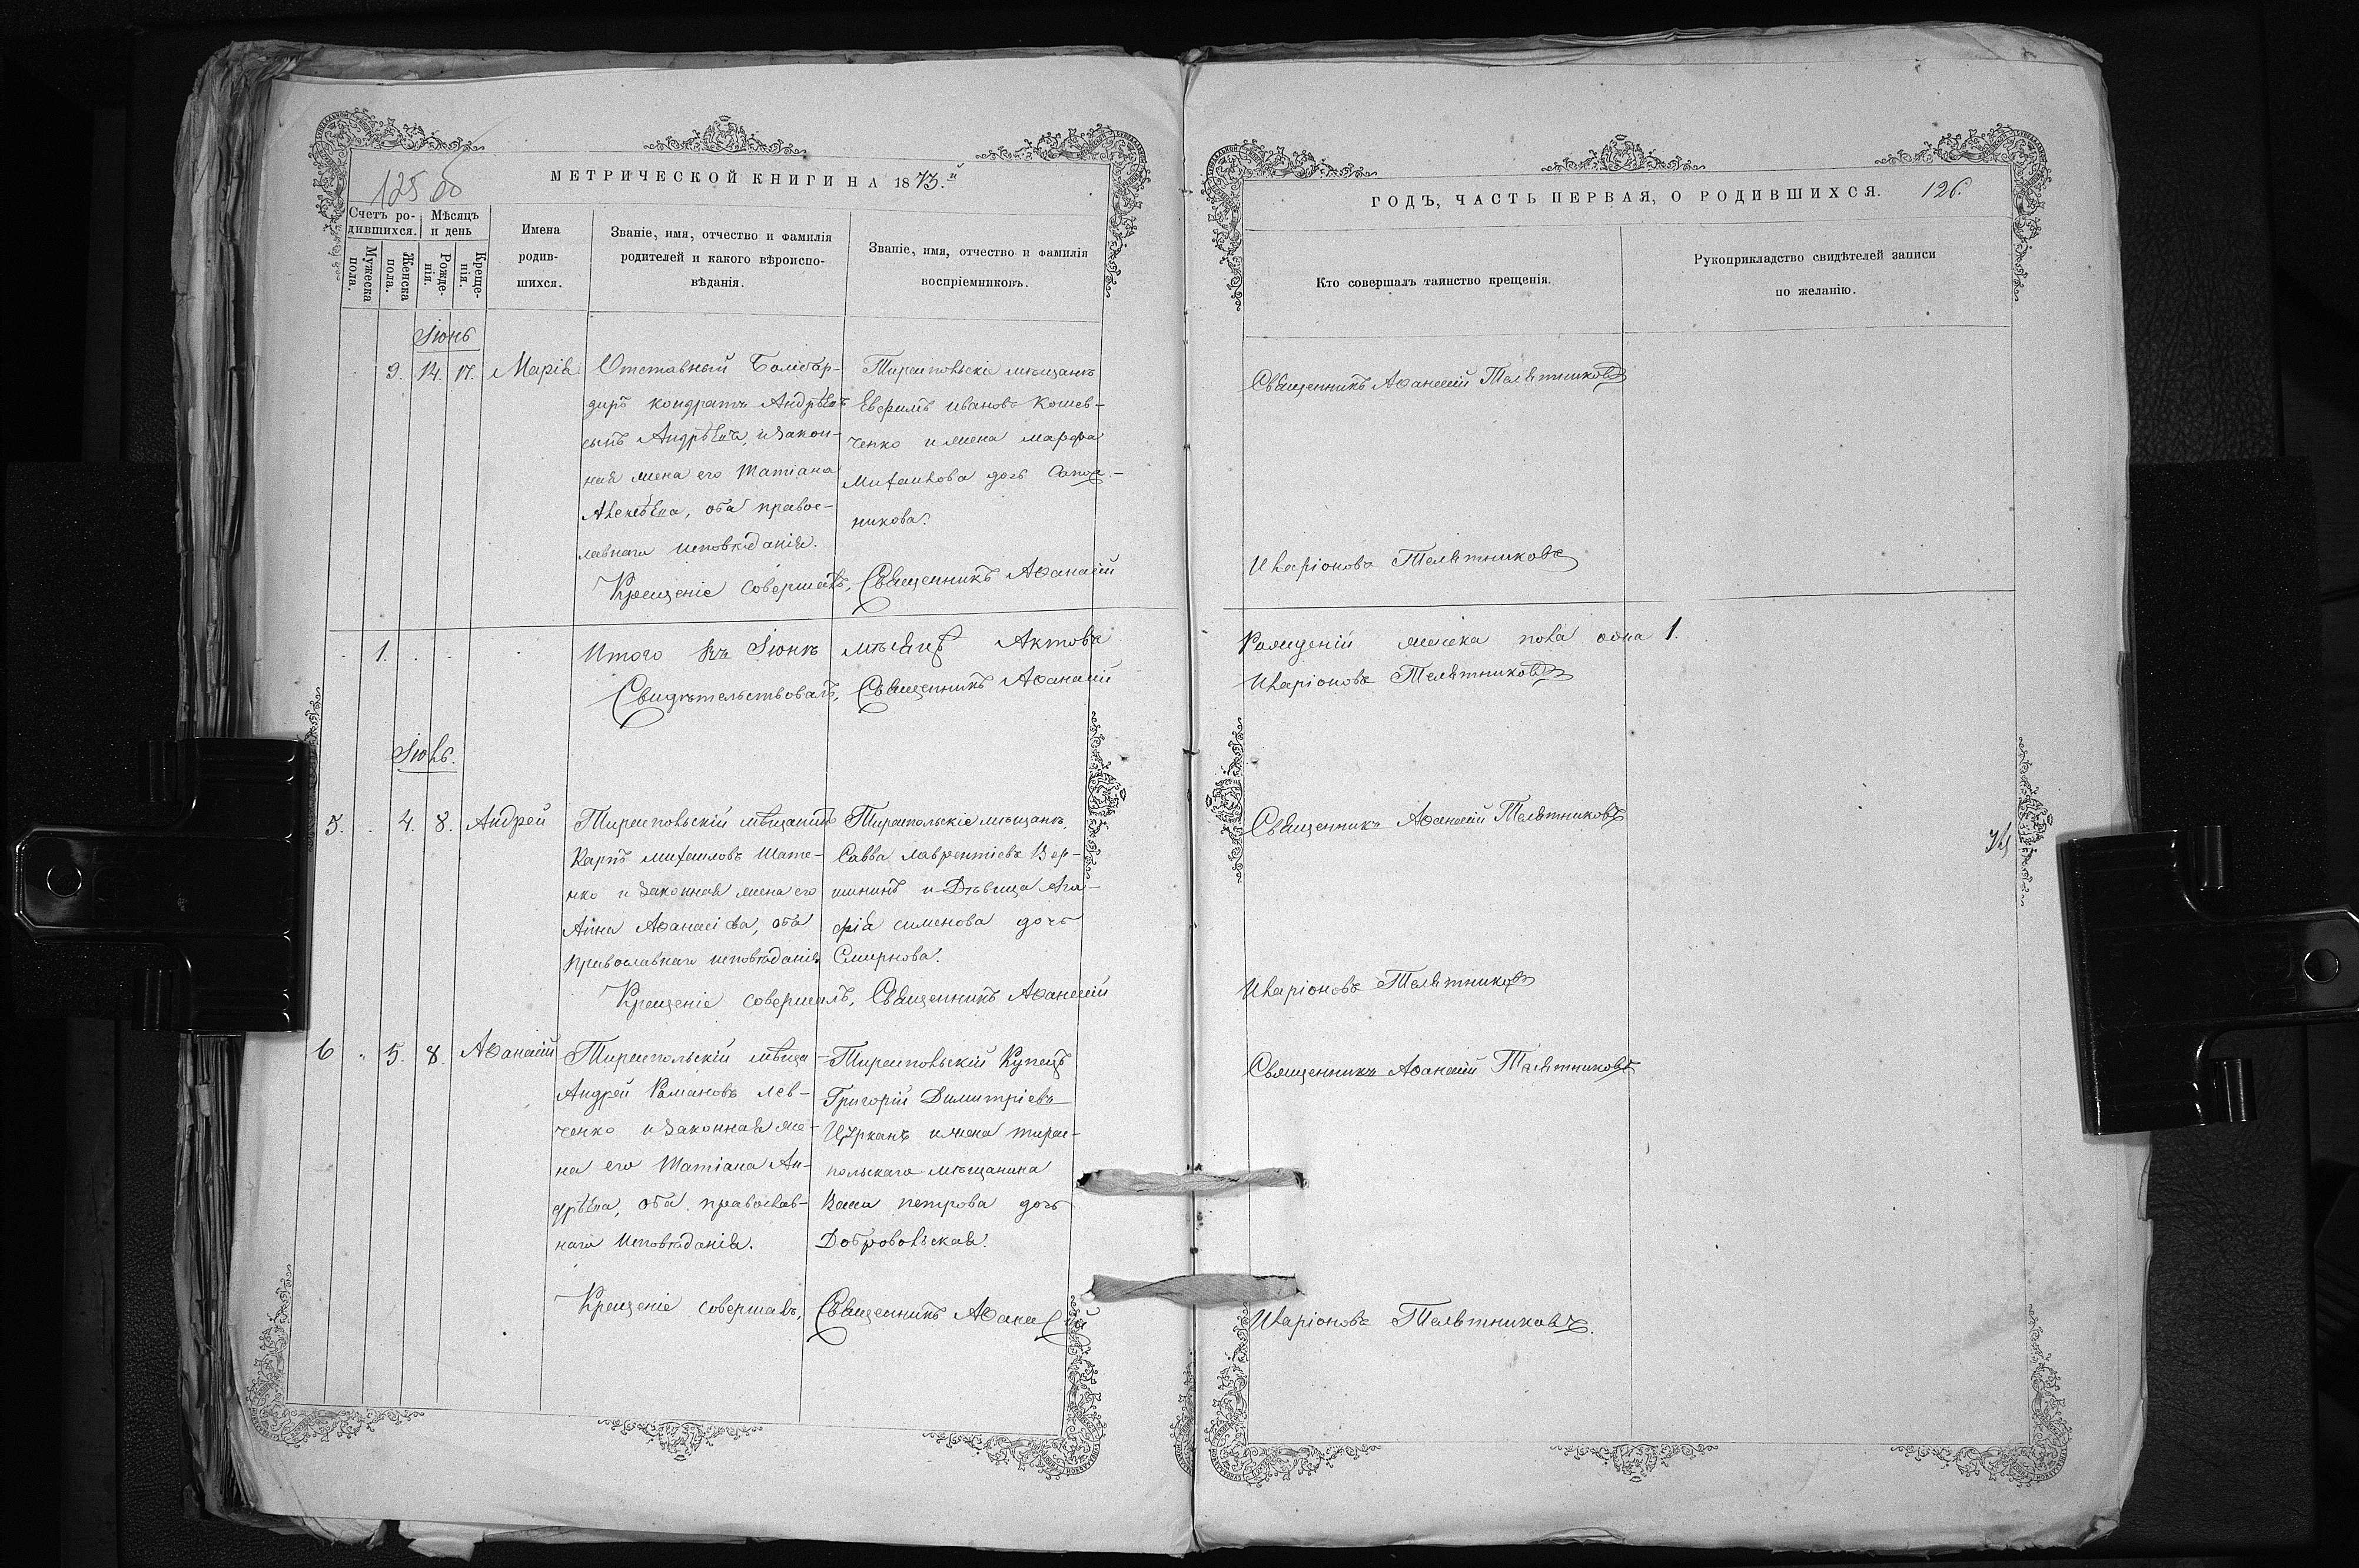 125 об
МЕТРИЧЕСКОЙ КНИГИ НА 1873.й
Счетъ ро-
дившихся.
Мѣсяцъ
и день
Мужеска
пола.
Женска
пола.
Рожде-
нія.
Креще-
нія.
Имена
родив-
шихся.
Званіе, имя, отчество и фамилія
родителей и какого вѣроиспо-
вѣданія.
Званіе, имя, отчество и фамилія
воспріемниковъ.
Іюнь
9. 14. 17. Марія
Отставный Бомбар-
диръ Кондратъ Андрѣевъ
сынъ Андрѣевъ, и закон-
ная жена его Татіана
Алексѣева, оба правос-
лавнаго исповѣданія.
Тираспольскіе мѣщане
Евфимъ Ивановъ Кошев-
ченко и жена Марфа
Михаилова дочь Сапож-
никова.
Крещеніе совершалъ, Священникъ Аѳанасій
1. Итого въ Іюнѣ мѣсяцѣ Актовъ
Свидѣтельствовалъ, Священникъ Аѳанасій
Іюль.
5. 4. 8. Андрей
Тираспольскій мѣщанинъ
Карпъ Михаиловъ Шате-
нко и законная жена его
Анна Аѳанасіева, оба
православнаго исповѣданія
Тираспольскіе мѣщане,
Савва Лаврентіевъ Вер-
шининъ и Дѣвица Ага-
фія Сименова дочь
Смирнова.
Крещеніе совершалъ, Священникъ Аѳанасій
6 5. 8. Аѳанасій
Тираспольскій мѣща-
Андрей Романовъ Лев-
ченко и законная же-
на его Татіана Ан-
дрѣева, оба православ-
наго исповѣданія.
Тираспольскій Купецъ
Григорій Димитріевъ
Цурканъ и жена тирас-
польскаго мѣщанина
Васса Петрова дочь
Добровольская.
Крещеніе совершалъ, Священникъ Аѳанасій
ГОДЪ, ЧАСТЬ ПЕРВАЯ, О РОДИВШИХСЯ.
126.
Кто совершалъ таинство крещенія.
Рукоприкладство свидѣтелей записи
по желанію.
Священникъ Аѳанасій Телятниковъ
Иларіоновъ Телятниковъ
Рожденій женска пола одна 1.
Иларіоновъ Телятниковъ
Священникъ Аѳанасій Телятниковъ
Иларіоновъ Телятниковъ
Священникъ Аѳанасій Телятниковъ
Иларіоновъ Телятниковъ.